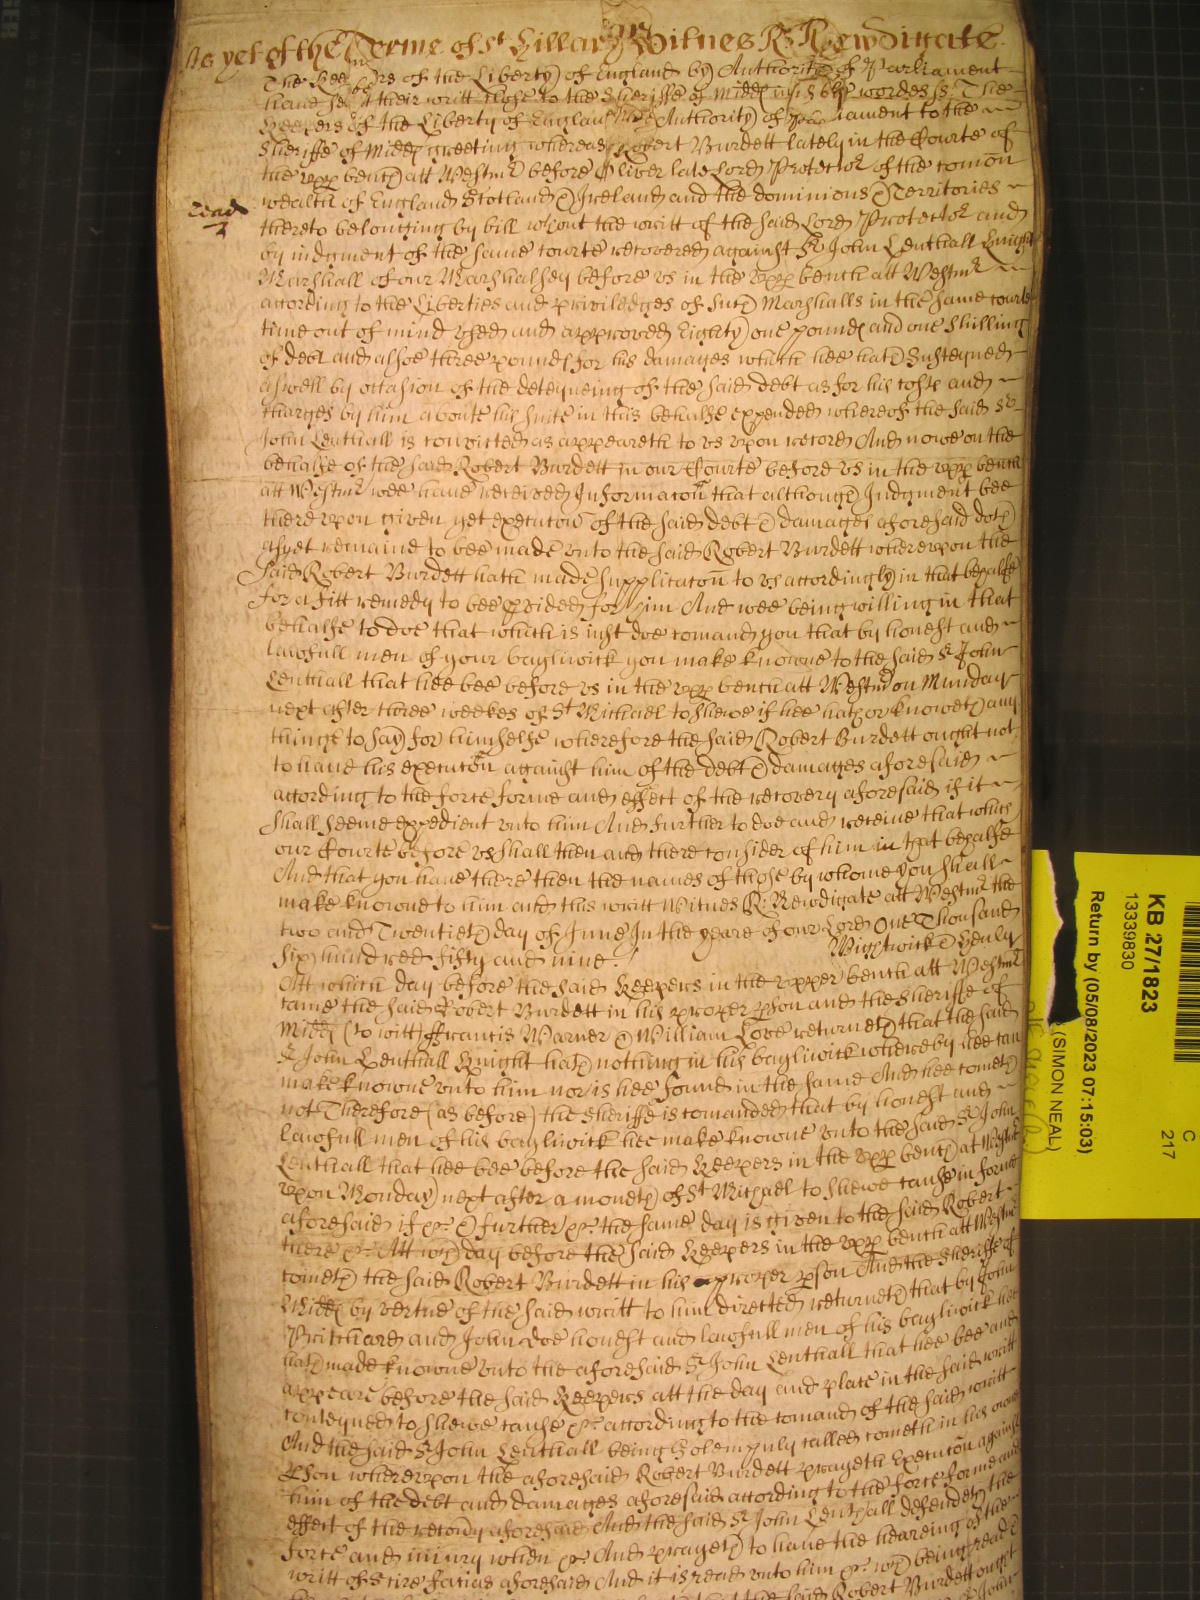 As yet of the Terme of St Hillary Witnes R: Newdigate
The Keepers of the Liberty of England by Authoritie of Parliament
have sent their writt close to the Sheriffe of Midd in these wordes ss. The
Keepers of the Liberty of England by Authority of Parliament to the
Sheriffe of Midd greeting whereas Robert Burdett lately in the Courte of
the upp bench att Westmr before Oliver late Lord Protector of the comon
wealth of England Scotland & Ireland and the dominions & Territories
Lead
thereto belonging by bill wthout the writt of the said Lord Protector and
by iudgment of the same Courte recovered against Sr John Lenthall Knight
Marshall of our Marshalsey before us in the upp bench att Westmr
according to the Liberties and priviledges of such Marshalls in the same Courte
time out of mind used and approoved Eighty one pounds and one shilling
of debt and alsoe three pounds for his damages which hee hath susteyned
aswell by occasion of the deteyneing of the said debt as for his costs and
charges by him aboute his suite in this behalfe expended whereof the said Sr
John Lenthall is convicted as appeareth to us upon record And nowe on the
behalfe of the said Robert Burdett in our Courte before us in the upp bench
att Westmr wee have received Informacon that although Iudgment bee
thereupon given yet execucon of the said debt & damages aforesaid doth
as yet remaine to bee made unto the said Robert Burdett whereupon the
said Robert Burdett hath made supplicacon to us accordingly in that behalfe
for a fitt remedy to bee pvided for him And wee being willing in that
behalfe to doe that which is iust doe comand you that by honest and
lawfull men of your bayliwick you make knowne to the said Sr John
Lenthall that hee bee before us in the upp bench att Westmr on Munday
next after three weekes of St Michael to shewe if hee hath or knoweth any
thinge to say for himselfe wherefore the said Robert Burdett ought not
to have his execucon against him of the debt & damages aforesaid
according to the force forme and effect of the recovery aforesaid if it
shall seeme expedient unto him And further to doe and receive that which
our Courte before us shall then and there consider of him in that behalfe
And that you have there then the names of those by whome you shall
make knowne to him and this writt Witnes R: Newdigate att Westmr the
two and Twentieth day of June In the yeare of our Lord One Thousand
six hundred fifty and nine Wightwick & Henly
Att which day before the said Keepers in the upper bench att Westmr
came the said Robert Burdett in his proper pson and the Sheriffe of
Midd (to witt) Francis Warner & William Love returneth that the said
Sr John Lenthall Knight hath nothing in his bayliwick whereby hee can
make knowne unto him nor is hee found in the same And hee cometh
not Therefore (as before) the Sheriffe is comanded that by honest and
lawfull men of his bayliwick hee make knowne unto the said Sr John
Lenthall that hee bee before the said Keepers in the upp bench at Westmr
upon Monday next after a moneth of St Michael to shewe cause in forme
aforesaid if &c & further &c the same day is given to the said Robert
there &c Att wch day before the said Keepers in the upp bench att Westmr
cometh the said Robert Burdett in his proper pson And the Sheriffe of
Midd by vertue of the said writt to him directed returneth that by John
Pritchard and John Doe honest and lawfull men of his bayliwick hee
hath made knowne unto the aforesaid Sr John Lenthall that hee bee and
appeare before the said Keepers att the day and place in the said writt
conteyned to shewe cause &c according to the comand of the said writt
And the said Sr John Lenthall being solempnly called cometh in his owne
pson whereupon the aforesaid Robert Burdett prayeth Execucon against
him of the debt and damages aforesaid according to the force forme and
effect of the recovery aforesaid And the said Sr John Lenthall defendeth the
force and iniury when &c And prayeth to have the heareing of the
writt of Scire facias aforesaid And it is read unto him &c wch being read &
the said Robert Burdett ought
KB 27/1823
13339830
Return by (05/08/2023 07:15:03)
(SIMON NEAL)
C
217